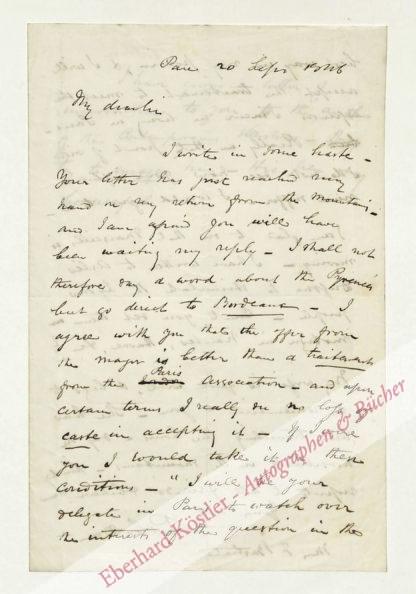 Pau 20 Sepr 1846
My dear Sir
I write in some haste -
Your letter has just reached my
hand on my return from the mountains -
and I am afraid you will have
been waiting my reply - I shall not
therefore say a word about the Pyrenees
but go direct to Bordeaux - I
agree with you that the offer from
the mayor is better than a traitement
from the London Paris Association - and upon
certain terms I really see no loss of
caste in accepting it - If I were
you I would take it on these
conditions - "I will be your
delegate in Paris to watch over
the interests of the question in the
Eberhard Köstler - Autographen & Bücher